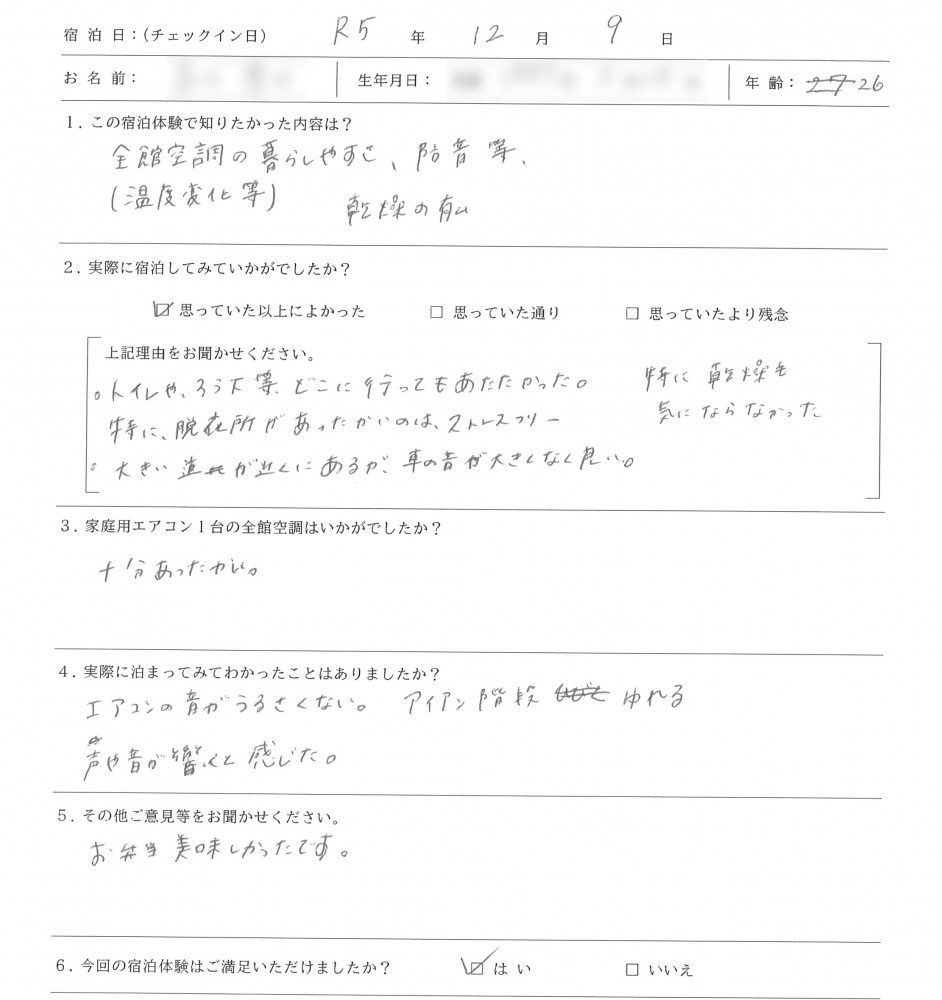 宿 泊 日：（チェックイン日） R5 年 12 月 9 日
お 名 前： 生年月日： 年 齢： 27 26
1. この宿泊体験で知りたかった内容は？
全館空調の暮らしやすさ、防音等、
(温度変化等) 乾燥の有ム
2. 実際に宿泊してみていかがでしたか？
☑ 思っていた以上によかった □ 思っていた通り □ 思っていたより残念
上記理由をお聞かせください。
。トイレや、ろう下等、どこに行ってもあたたかった。 特に乾燥も
特に、脱衣所があったかいのは、ストレスフリー 気にならなかった
。大きい道が近くにあるが、車の音が大きくなく良い。
3. 家庭用エアコン1台の全館空調はいかがでしたか？
十分あったかい。
4. 実際に泊まってみてわかったことはありましたか？
エアコンの音がうるさくない。 アイアン階段 ゆれる
声や音が響くと感じた。
5. その他ご意見等をお聞かせください。
お弁当美味しかったです。
6. 今回の宿泊体験はご満足いただけましたか？ ☑ は い □ いいえ